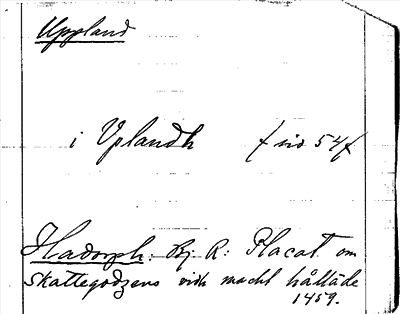 Uppland
i Vplandh f sid 54 f
Hadorph: Bj. R: Placat om
Skattegodzens vidh macht hållāde
1459.